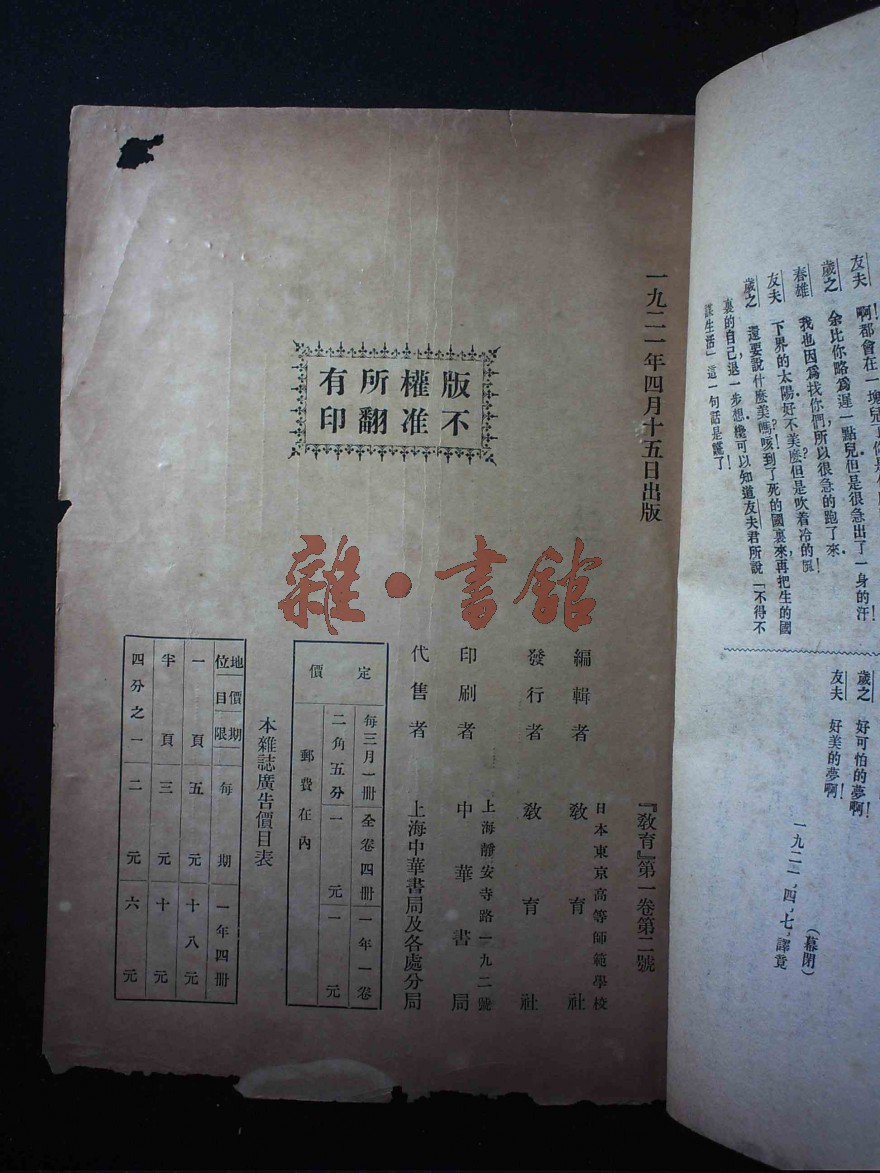 友夫　啊!都會在一塊兒
歲之　余比你略爲遲一點兒但是很急出了一身的汗!
春雄　我也因爲找你們，所以很急的跑了來．
友夫　下界的太陽好不美麽但是吹着冷的
歲之　還要說什麽美嗎?!咳到了死的國裏來，再把生的國
裏的自己，退一步想，纔可以知道友夫君所說「不得不
謀生活」這一句話是謊了!
歲之　好可怕的夢啊!
友夫　好美的夢啊!
（幕閉）
一九二一，四，七，譯竟
一九二一年四月十五日出版
『教育』第一卷第二號
編輯者　日本東京高等師範學校
教育社
發行者　教育社
印刷者　上海靜安寺路一九二號
中華書局
代售者　上海中華書局及各處分局
版權所有
不准翻印
定價
每三月一冊　全卷四冊　一年一卷
二角五分　一元　一元
郵費在內
本雜誌廣告價目表
地位　價目　期限　每期　一年四冊
一頁　五元　十八元
半頁　三元　十元
四分之一　二元　六元
雜·書館